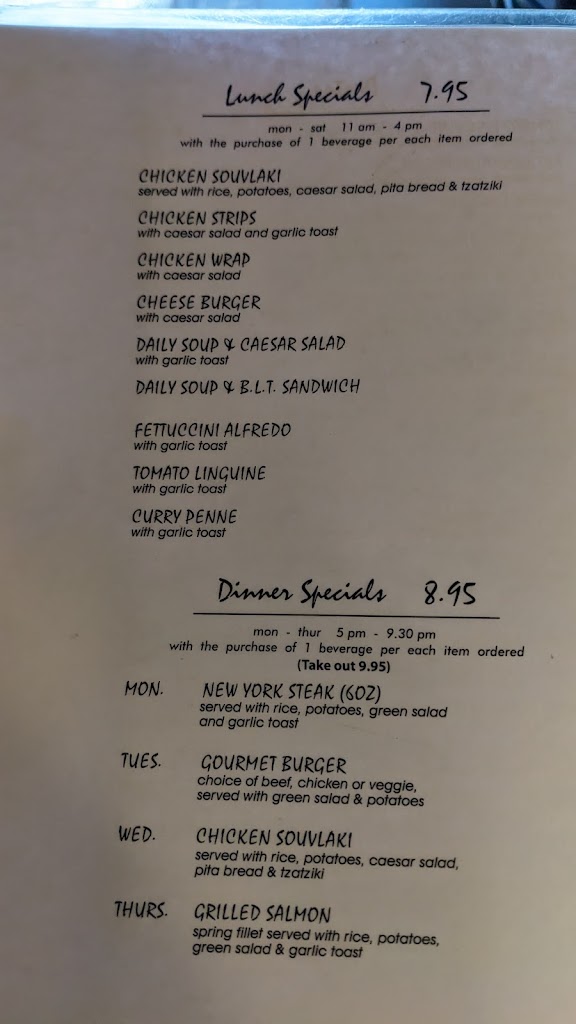 Lunch Specials 7.95
mon - sat 11 am - 4 pm
with the purchase of 1 beverage per each item ordered
CHICKEN SOUVLAKI
served with rice, potatoes, caesar salad, pita bread & tzatziki
CHICKEN STRIPS
with caesar salad and garlic toast
CHICKEN WRAP
with caesar salad
CHEESE BURGER
with caesar salad
DAILY SOUP & CAESAR SALAD
with garlic toast
DAILY SOUP & B.L.T. SANDWICH
FETTUCCINI ALFREDO
with garlic toast
TOMATO LINGUINE
with garlic toast
CURRY PENNE
with garlic toast
Dinner Specials 8.95
mon - thur 5 pm - 9.30 pm
with the purchase of 1 beverage per each item ordered
(Take out 9.95)
MON. NEW YORK STEAK (6OZ)
served with rice, potatoes, green salad
and garlic toast
TUES. GOURMET BURGER
choice of beef, chicken or veggie,
served with green salad & potatoes
WED. CHICKEN SOUVLAKI
served with rice, potatoes, caesar salad,
pita bread & tzatziki
THURS. GRILLED SALMON
spring fillet served with rice, potatoes,
green salad & garlic toast